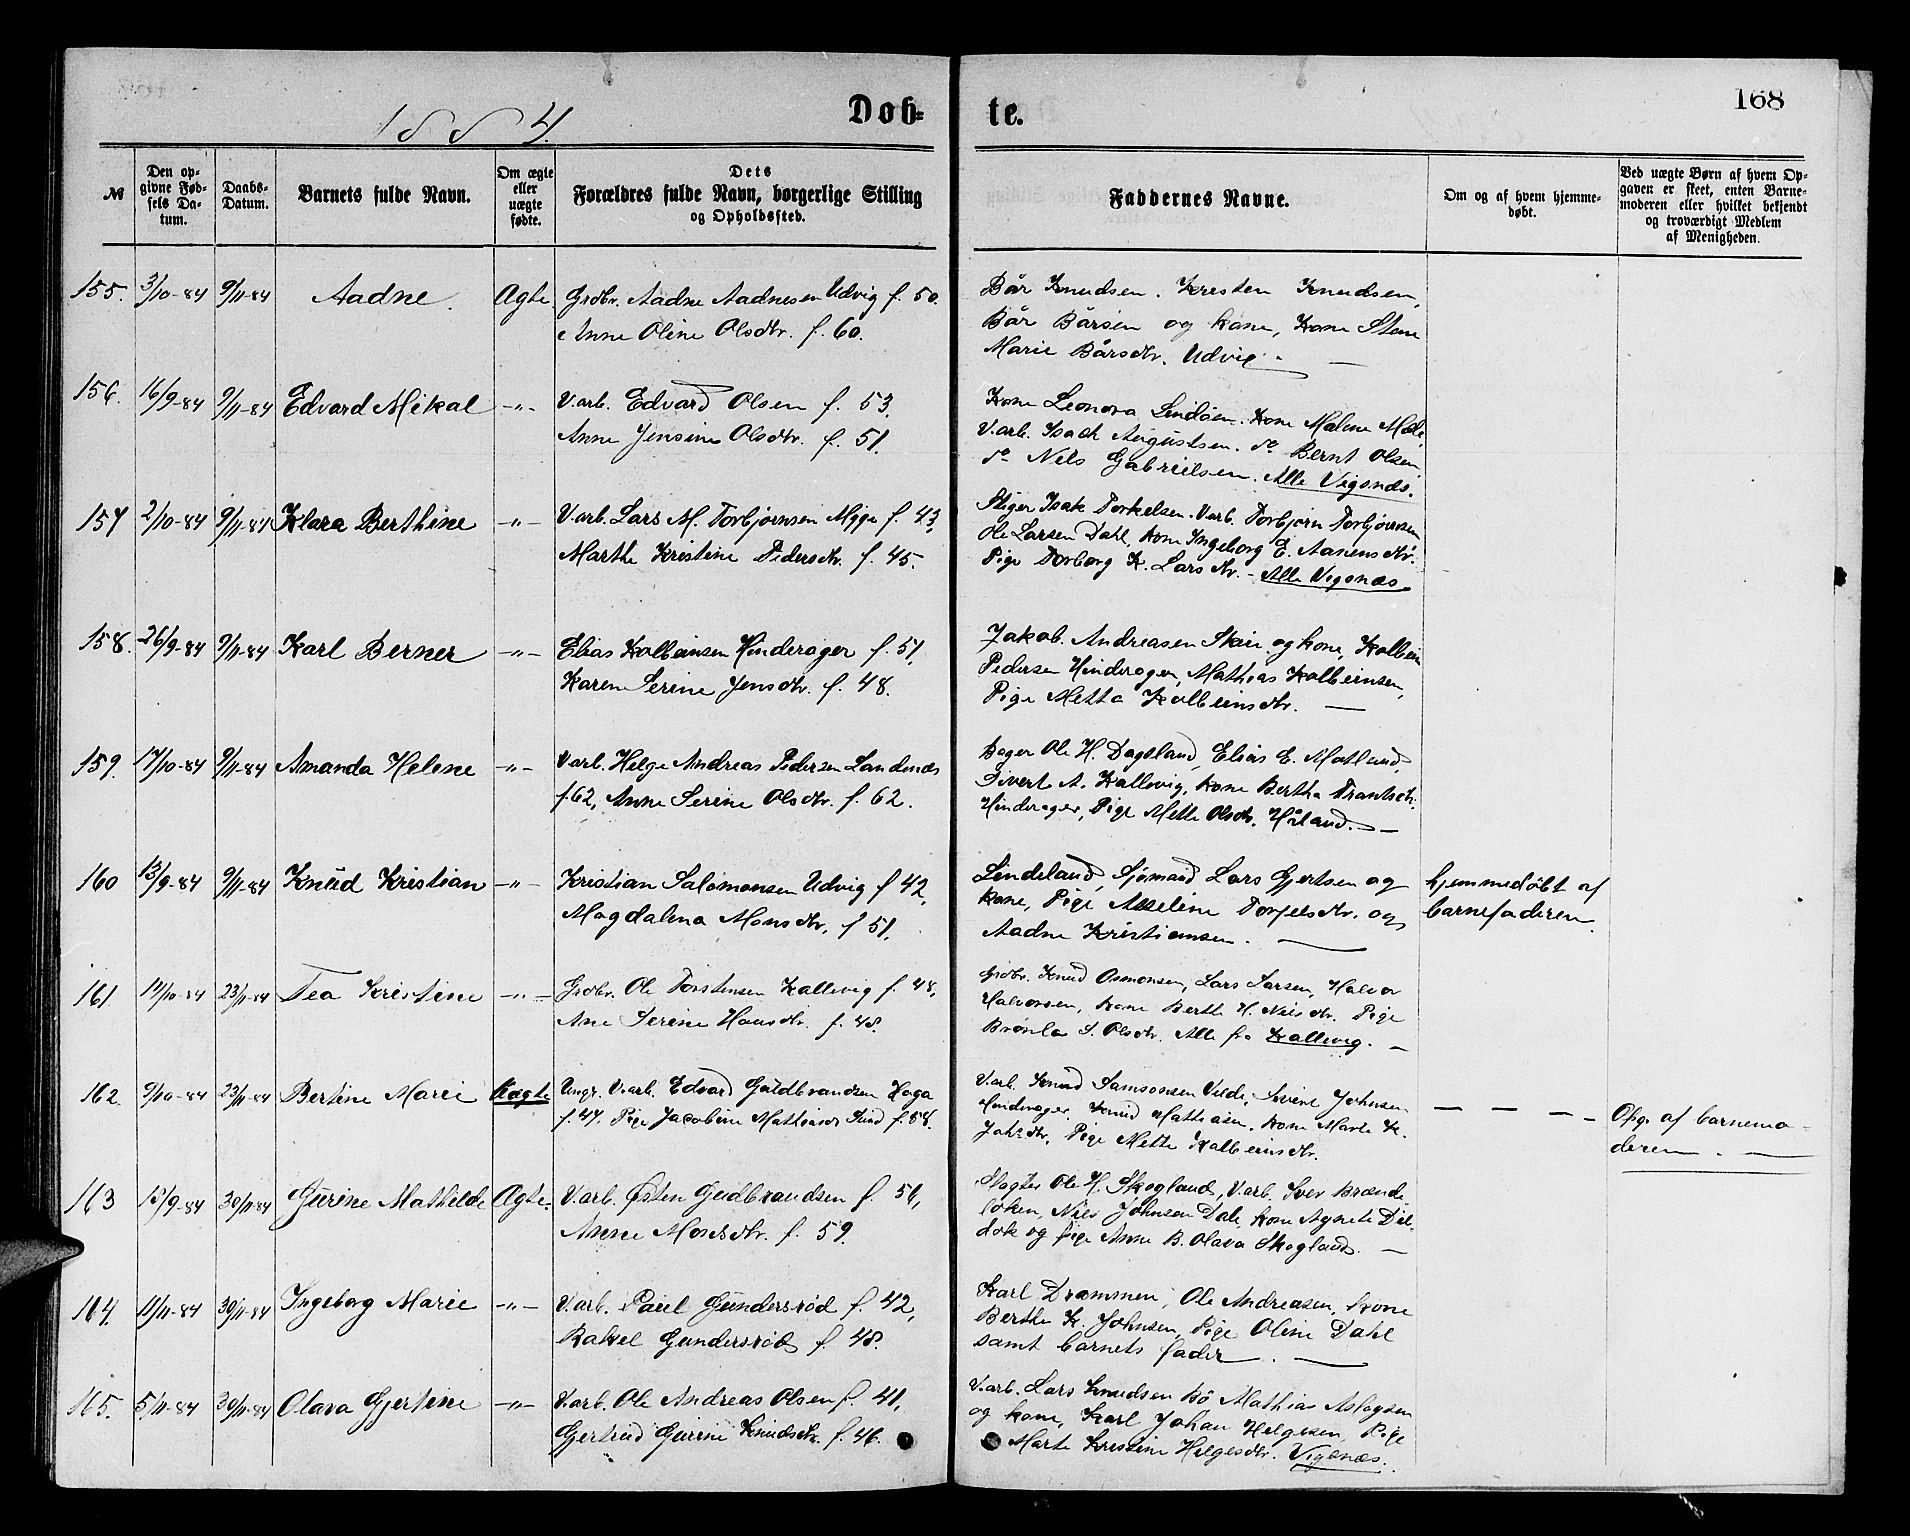 1884.
Døb-
te.
168
№
Den op-
givne Fød-
sels Da-
tum.
Daabs-
Datum.
Barnets fulde Navn.
Om ægte
eller
uægte
fødte.
Dets
Forældres fulde Navn, borgerlige Stilling
og Opholdssted.
Faddernes Navne.
Om og af hvem hjemme-
døbt.
Ved uægte Børn af hvem Op-
gaven er skeet, enten Barne-
moderen eller hvilket bekjendt
og troværdigt Medlem
af Menigheden.
155. 3/10-84 9/11-84 Aadne Ægte Grdbr. Aadne Aadnesen Udvig f. 50.
Anne Oline Olsdtr. f. 60.
Bår Knudsen. Kresten Knudsen,
Bår Bårsen og kone, Kone Stene
Marie Bårsdtr. Udvig. —
156. 16/9-84 9/11-84 Edvard Mikal -"- V.arb. Edvard Olsen f. 53.
Anne Jensine Olsdtr. f. 51.
Kone Leonora Lindöen. Kone Malene
V.arb. Isack Augustsen. do Bernt Olsen
do Nils Gabrielsen. Alle Vigsnæs.
157 2/10-84 9/11-84 Klara Berthine -"- V.arb. Lars M. Torbjørnsen Myge f. 43,
Marthe Kristine Pedersdtr. f. 45.
Stiger Isak Torkelsen. V.arb. Torbjørn Torbjørnsen
Ole Larsen Dahl, kone Ingeborg E. Aanensdtr.
Pige Torborg K. Larsdtr. - Alle Vigsnæs
158. 26/9-84 9/11-84 Karl Berner -"- Elias Kolbeinsen Hinderager f. 51,
Karen Serine Jensdtr. f. 48.
Jakob Andreasen Skeie og kone, Kolbein
Pedersen Hinderager, Mathias Kolbeinsen,
Pige Metta Kolbeinsdtr. —
159. 17/10-84 9/11-84 Amanda Helene -"- V.arb. Helge Andreas Pedersen Landenæs
f. 62, Anne Serine Olsdtr. f. 62.
Bager Ole H. Dagsland, Elias E. Matland,
Sivert A. Kallevig, kone Bertha Trantsch.
Hinderager, Pige Mette Olsdtr. Håland. —
160 13/9-84 9/11-84 Knud Kristian -"- Kristian Salomonsen Udvig f 42,
Magdalena Monsdtr. f 51.
Lindeland, Sjømand Lars Gjertsen og
kone, Pige Asseline Torfelsdtr. og
Aadne Kristiansen. —
hjemmedøbt af
barnefaderen.
161. 14/10-84 23/11-84 Tea Kristine -"- Grdbr. Ole Torstensen Kallevig f. 48,
Ane Serine Hansdtr. f. 48.
Grdbr. Knud Osmonsen, Lars Larsen, Halvor
Halvorsen, kone Berthe H. Nilsdtr. Pige
Brønla S. Olsdtr. Alle fra Kallevig. —
162. 9/10-84 23/11-84 Bertine Marie Uægte Ungk. V.arb. Edvard Guldbrandsen Haga
f. 47. Pige Jacobine Mathiasdr Sund f. 58.
V.arb. Knud Samsonsen Velde, Sivert Johnsen
Hinderager, Knud Mathiasen, kone Marte K.
Johsdtr, Pige Mette Kolbeinsdtr.
— — — - Opg. af barnemo-
deren. —
163 15/9-84 30/11-84 Gurine Mathilde Ægte. V.arb. Østen Guldbrandsen f. 56,
Anne Monsdtr. f. 59.
Slagter Ole H. Skogland, V.arb. Iver Brænde
løken, Nils Johnsen Dale kone Agnete Dil-
dok og pige Anne B. Olava Skogland. —
164. 11/11-84 30/11-84 Ingeborg Marie -"- V.arb. Paul Gundersrød f. 42,
Rakel Gundersrød f. 48.
Karl Drammen, Ole Andreasen, kone
Berthe K. Johnsen, Pige Oline Dahl
samt barnets fader. —
165. 5/11-84 30/11-84 Olava Gjertine -"- V.arb. Ole Andreas Olsen f. 41,
Gjertrud Gurine Knudsdtr. f. 46.
V.arb. Lars Knudsen Bö Mathias Aslagsen
og kone, Karl Johan Helgesen, Pige
Marte Kristine Helgesdtr. Vigsnæs.